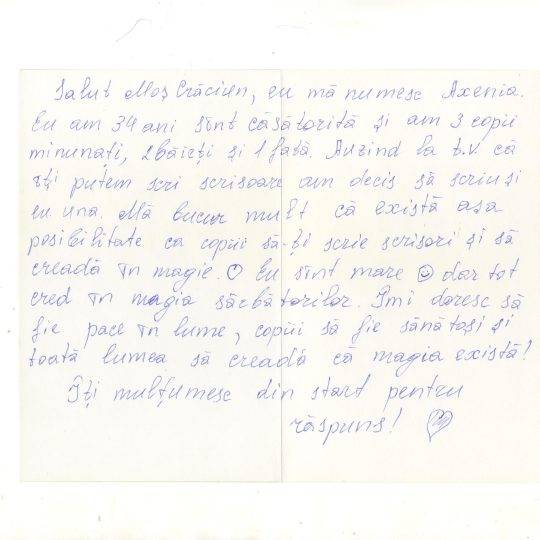 Salut Moș Crăciun, eu mă numesc Axenia.
Eu am 34 ani sînt căsătorită și am 3 copii
minunați, 2băieți și 1 fată. Auzind la t.v. că
îți putem scri scrisoare am decis să scriu și
eu una. Mă bucur mult că există așa
posibilitate ca copii să-ți scrie scrisori și să
creadă în magie. Eu sînt mare ☺ dar tot
cred în magia sărbătorilor. Îmi doresc să
fie pace în lume, copii să fie sănătoși și
toată lumea să creadă că magia există!
Îți mulțumesc din start pentru
răspuns! ♡